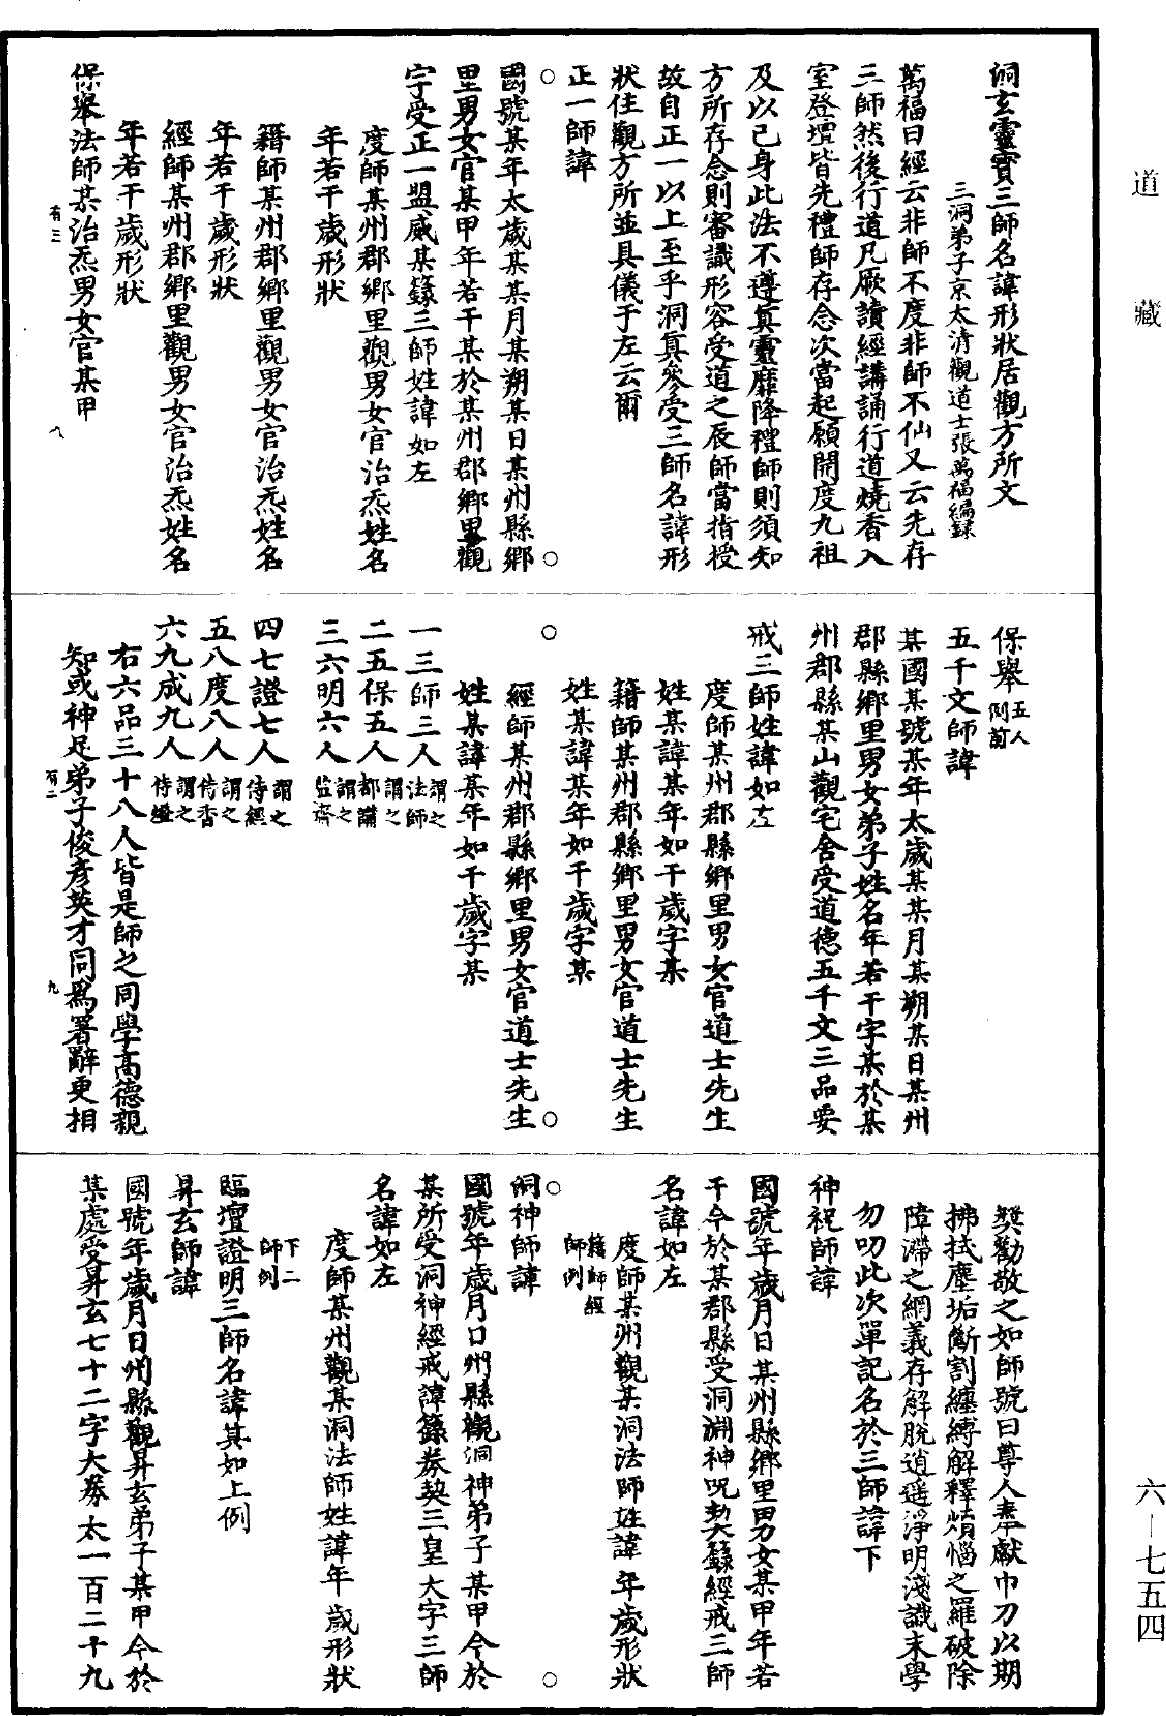 道藏
洞玄靈寶三師名諱形狀居觀方所文
三洞弟子京太清觀道士張萬福編錄
萬福曰經云非師不度非師不仙又云先存
三師然後行道凡厥讀經講誦行道燒香入
室登壇皆先禮師存念次當起願開度九祖
及以己身此法不遵真靈靡降禮師則須知
方所存念則審識形容受道之辰師當指授
故自正一以上至乎洞真參受三師名諱形
狀住觀方所並具儀于左云爾
正一師諱
○ ○
國號某年太歲某某月某朔某日某州縣鄉
里男女官某甲年若干某於某州郡鄉里觀
宇受正一盟威某籙三師姓諱如左
度師某州郡鄉里觀男女官治炁姓名
年若干歲形狀
籍師某州郡鄉里觀男女官治炁姓名
年若干歲形狀
經師某州郡鄉里觀男女官治炁姓名
年若干歲形狀
有三 八
保舉法師某治炁男女官某甲
保舉五人例前
五千文師諱
某國某號某年太歲某某月某朔某日某州
郡縣鄉里男女弟子姓名年若干字某於某
州郡縣某山觀宅舍受道德五千文三品要
戒三師姓諱如左
度師某州郡縣鄉里男女官道士先生
姓某諱某年如干歲字某
籍師某州郡縣鄉里男女官道士先生
姓某諱某年如干歲字某
○ ○
經師某州郡縣鄉里男女官道士先生
姓某諱某年如干歲字某
一三師三人謂之法師
二五保五人謂之都講
三六明六人謂之監齋
四七證七人謂之侍經
五八度八人謂之侍香
六九成九人謂之侍燈
右六品三十八人皆是師之同學高德親
知或神足弟子俊彥英才同為署辭更相
有二 九
獎勸敬之如師號曰尊人奉獻巾刀以期
拂拭塵垢斷割纏縛解釋煩惱之羅破除
障滯之網義存解脫逍遙淨明淺識末學
勿叨此次單記名於三師諱下
神祝師諱
國號年歲月日某州縣鄉里男女某甲年若
干今於某郡縣受洞淵神呪契籙經戒三師
名諱如左
度師某州觀某洞法師姓諱年歲形狀
籍師經師例
○ ○
洞神師諱
國號年歲月口州縣觀洞神弟子某甲今於
某所受洞神經戒諱籙券契三皇大字三師
名諱如左
度師某州觀某洞法師姓諱年歲形狀
下二師例
臨壇證明三師名諱其如上例
昇玄師諱
國號年歲月日州縣觀昇玄弟子某甲今於
某處受昇玄七十二字大券太一百二十九
六－七五四